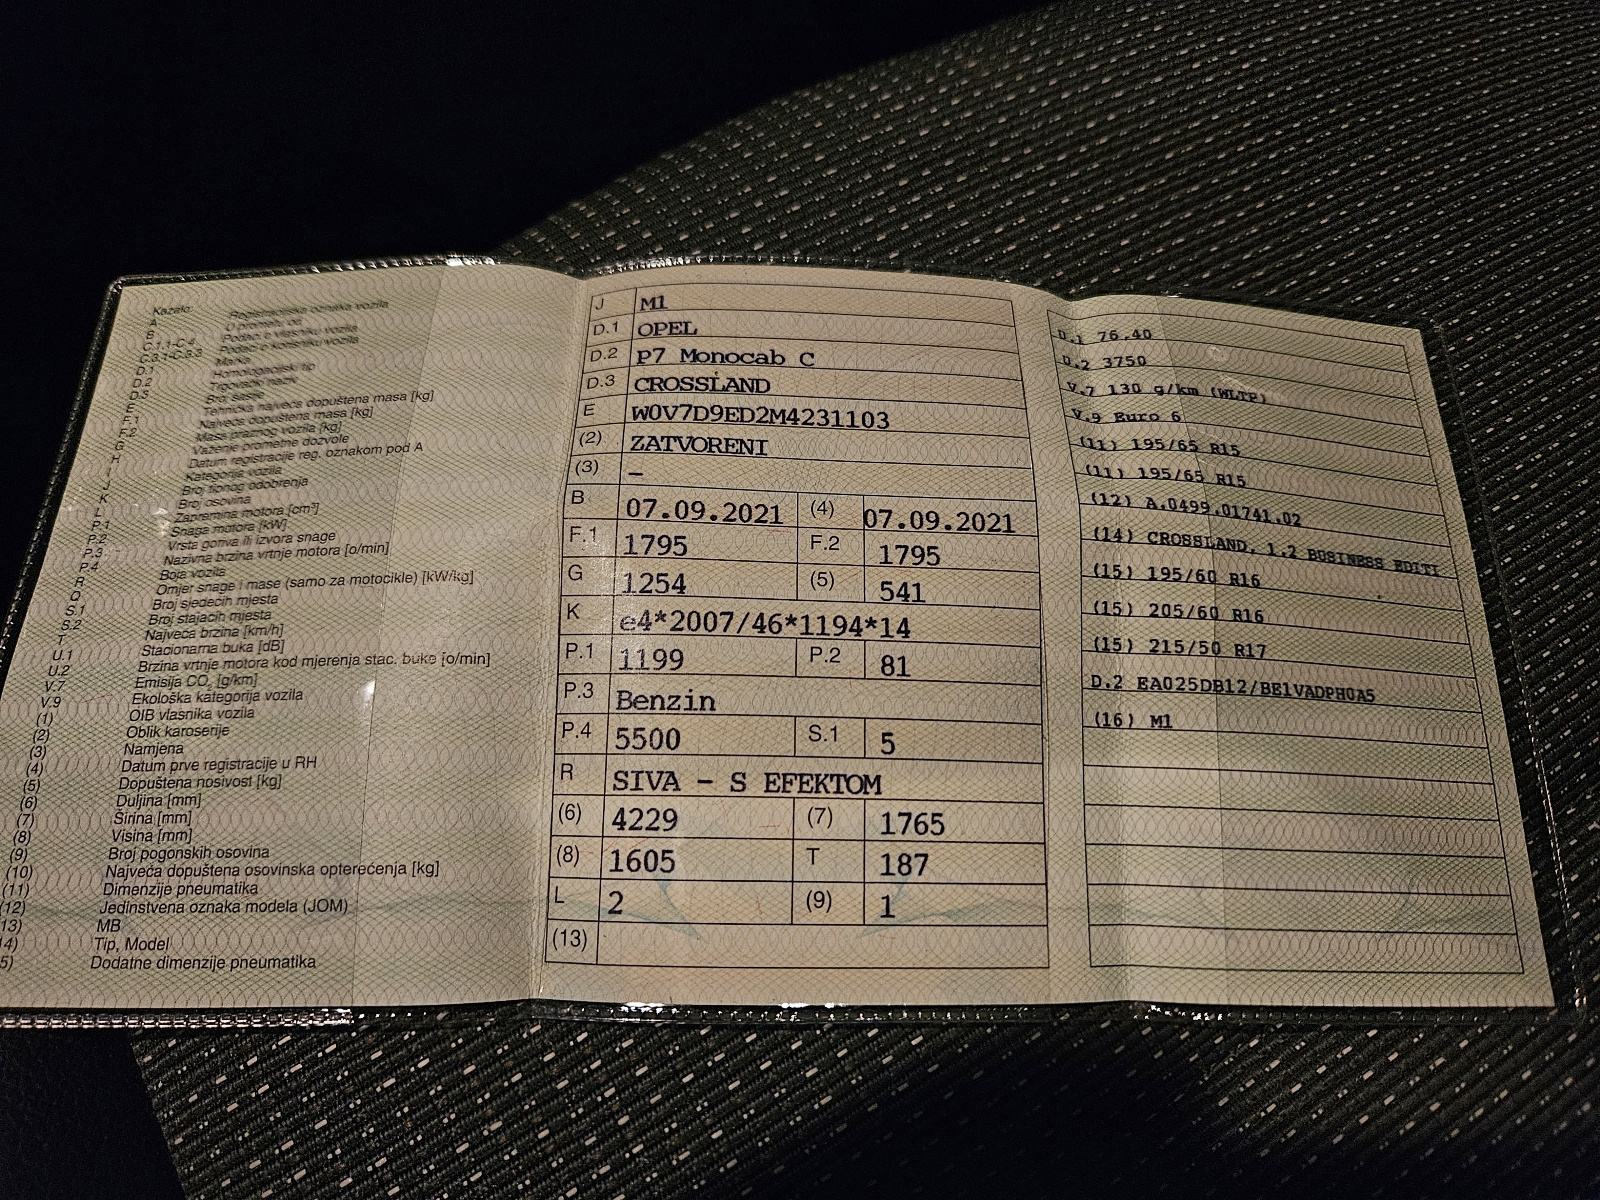 Kazalo:
A Registracijska oznaka vozila
B
C.1.1-C.4 Podaci o vlasniku vozila
C.3.1-C.3.3 Podaci o korisniku vozila
D.1 Marka
D.2 Homologacijski tip
D.3 Trgovački naziv
E Broj šasije
F.1 Tehnička najveća dopuštena masa [kg]
F.2 Najveća dopuštena masa [kg]
G Masa praznog vozila [kg]
H Važenje prometne dozvole
I Datum registracije reg. oznakom pod A
J Kategorija vozila
K Broj tipnog odobrenja
L Broj osovina
P.1 Zapremina motora [cm³]
P.2 Snaga motora [kW]
P.3 Vrsta goriva ili izvora snage
P.4 Nazivna brzina vrtnje motora [o/min]
R Boja vozila
Q Omjer snage i mase (samo za motocikle) [kW/kg]
S.1 Broj sjedećih mjesta
S.2 Broj stajaćih mjesta
T Najveća brzina [km/h]
U.1 Stacionarna buka [dB]
U.2 Brzina vrtnje motora kod mjerenja stac. buke [o/min]
V.7 Emisija CO₂ [g/km]
V.9 Ekološka kategorija vozila
(1) OIB vlasnika vozila
(2) Oblik karoserije
(3) Namjena
(4) Datum prve registracije u RH
(5) Dopuštena nosivost [kg]
(6) Duljina [mm]
(7) Širina [mm]
(8) Visina [mm]
(9) Broj pogonskih osovina
(10) Najveća dopuštena osovinska opterećenja [kg]
(11) Dimenzije pneumatika
(12) Jedinstvena oznaka modela (JOM)
13) MB
4) Tip, Model
5) Dodatne dimenzije pneumatika
J M1
D.1 OPEL
D.2 P7 Monocab C
D.3 CROSSLAND
E W0V7D9ED2M4231103
(2) ZATVORENI
(3) –
B 07.09.2021 (4) 07.09.2021
F.1 1795 F.2 1795
G 1254 (5) 541
K e4*2007/46*1194*14
P.1 1199 P.2 81
P.3 Benzin
P.4 5500 S.1 5
R SIVA – S EFEKTOM
(6) 4229 (7) 1765
(8) 1605 T 187
L 2 (9) 1
(13)
76.40
D.2 3750
V.7 130 g/km (WLTP)
V.9 Euro 6
(11) 195/65 R15
(11) 195/65 R15
(12) A.0499.01741.02
(14) CROSSLAND, 1.2 BUSINESS EDITI
(15) 195/60 R16
(15) 205/60 R16
(15) 215/50 R17
D.2 EA025DB12/BE1VADPH0A5
(16) M1